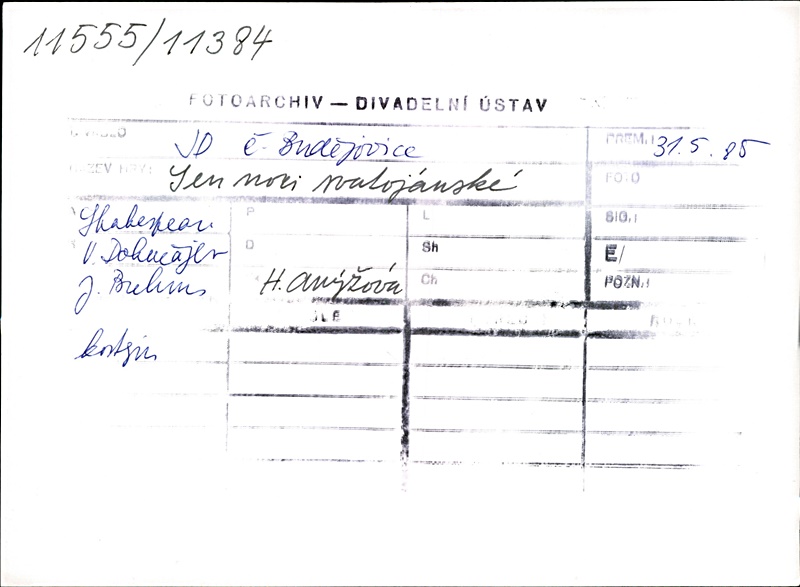 11555/11384
FOTOARCHIV — DIVADELNÍ ÚSTAV
JD Č. Budějovice
PREM.: 31.5.85
Sen noci svatojánské
FOTO
Shakespeare
P
L
SIG.:
D
Sh
E/
H. Anýžová
Ch
POZN.:
kostým